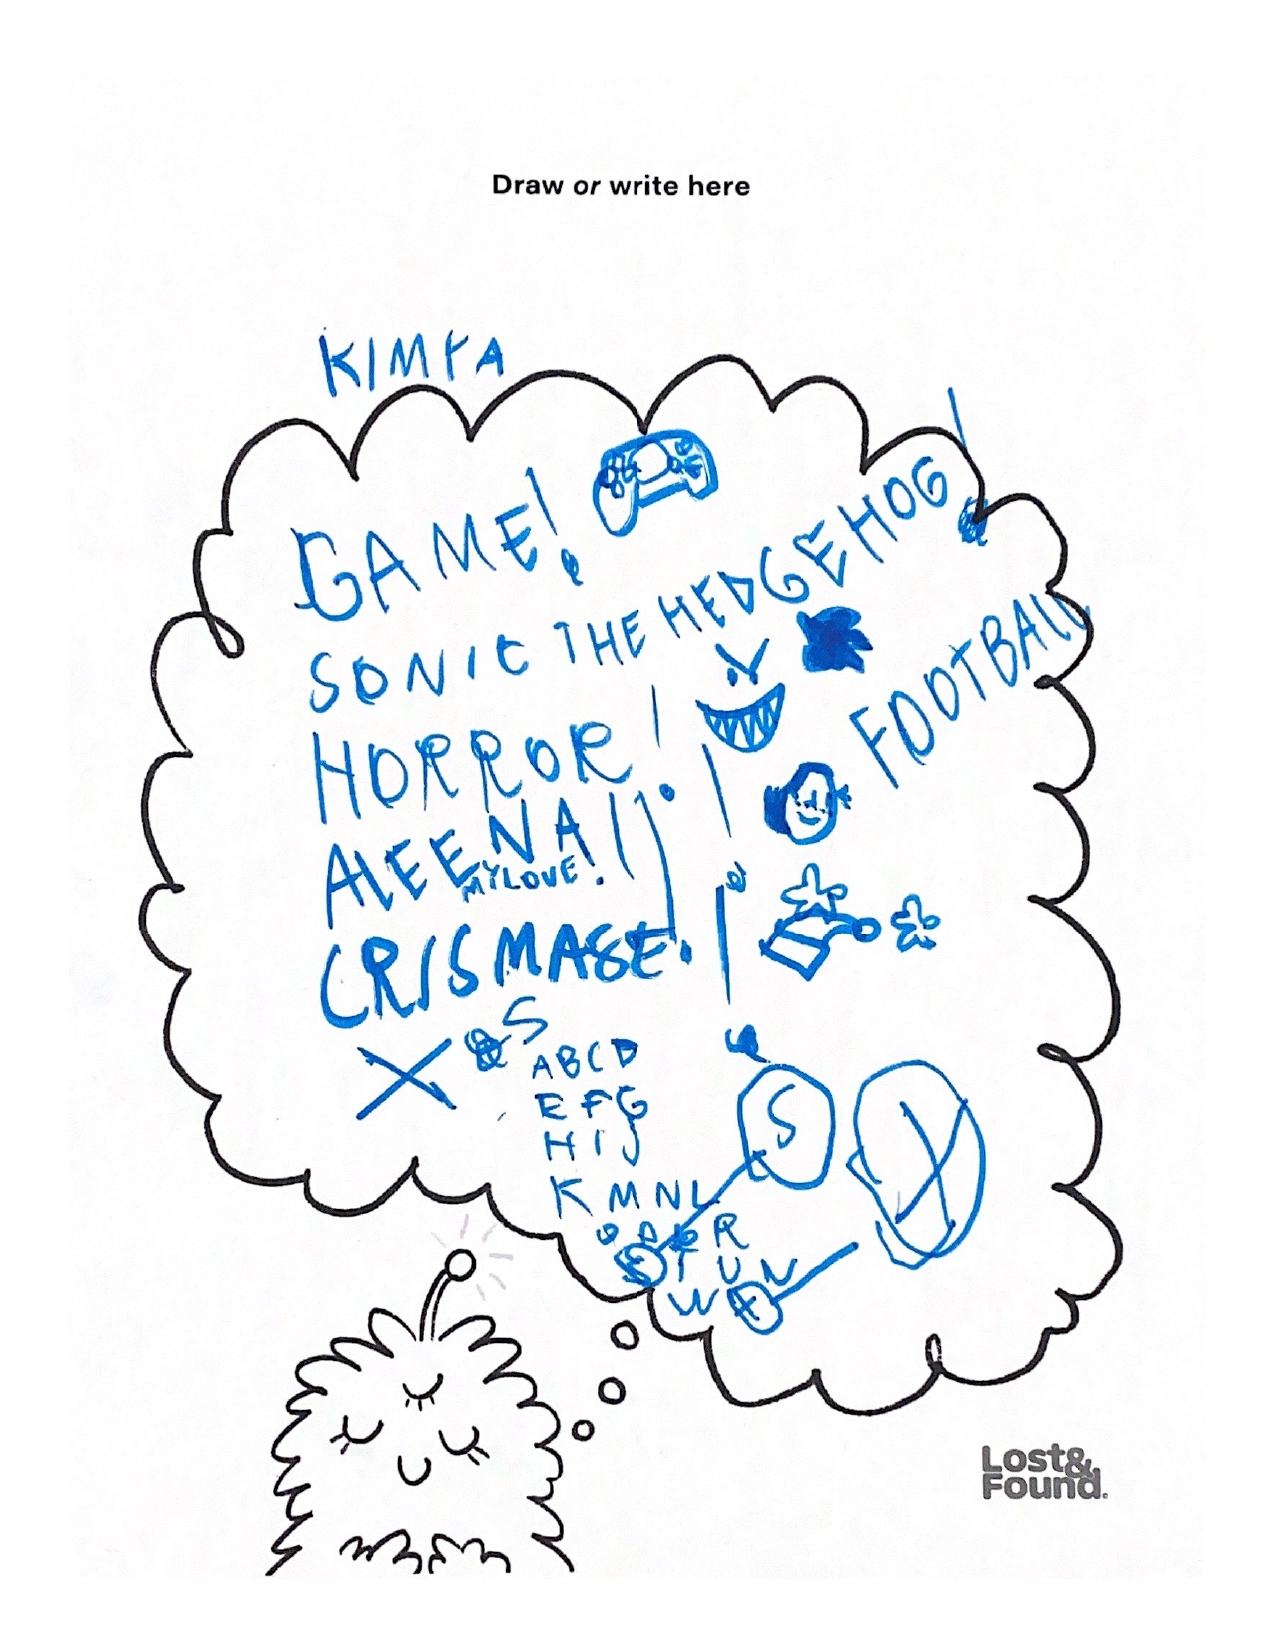 Draw or write here
KIMYA
GAME!
SONIC THE HEDGEHOG!
HORROR!
FOOTBALL
ALEENA!!
MY LOVE!
CRISMASE!
X S
ABCD
EFG
HIJ
S
X
K M N L
R
T U V
W X
Lost&
Found.